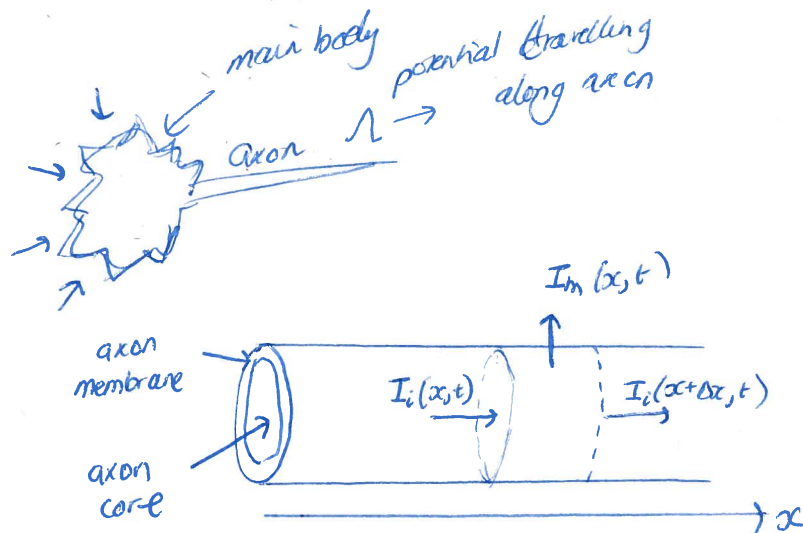 main body
potential travelling
along axon
axon
Iₘ(x,t)
axon
membrane
Iᵢ(x,t)
Iᵢ(x+Δx,t)
axon
core
x